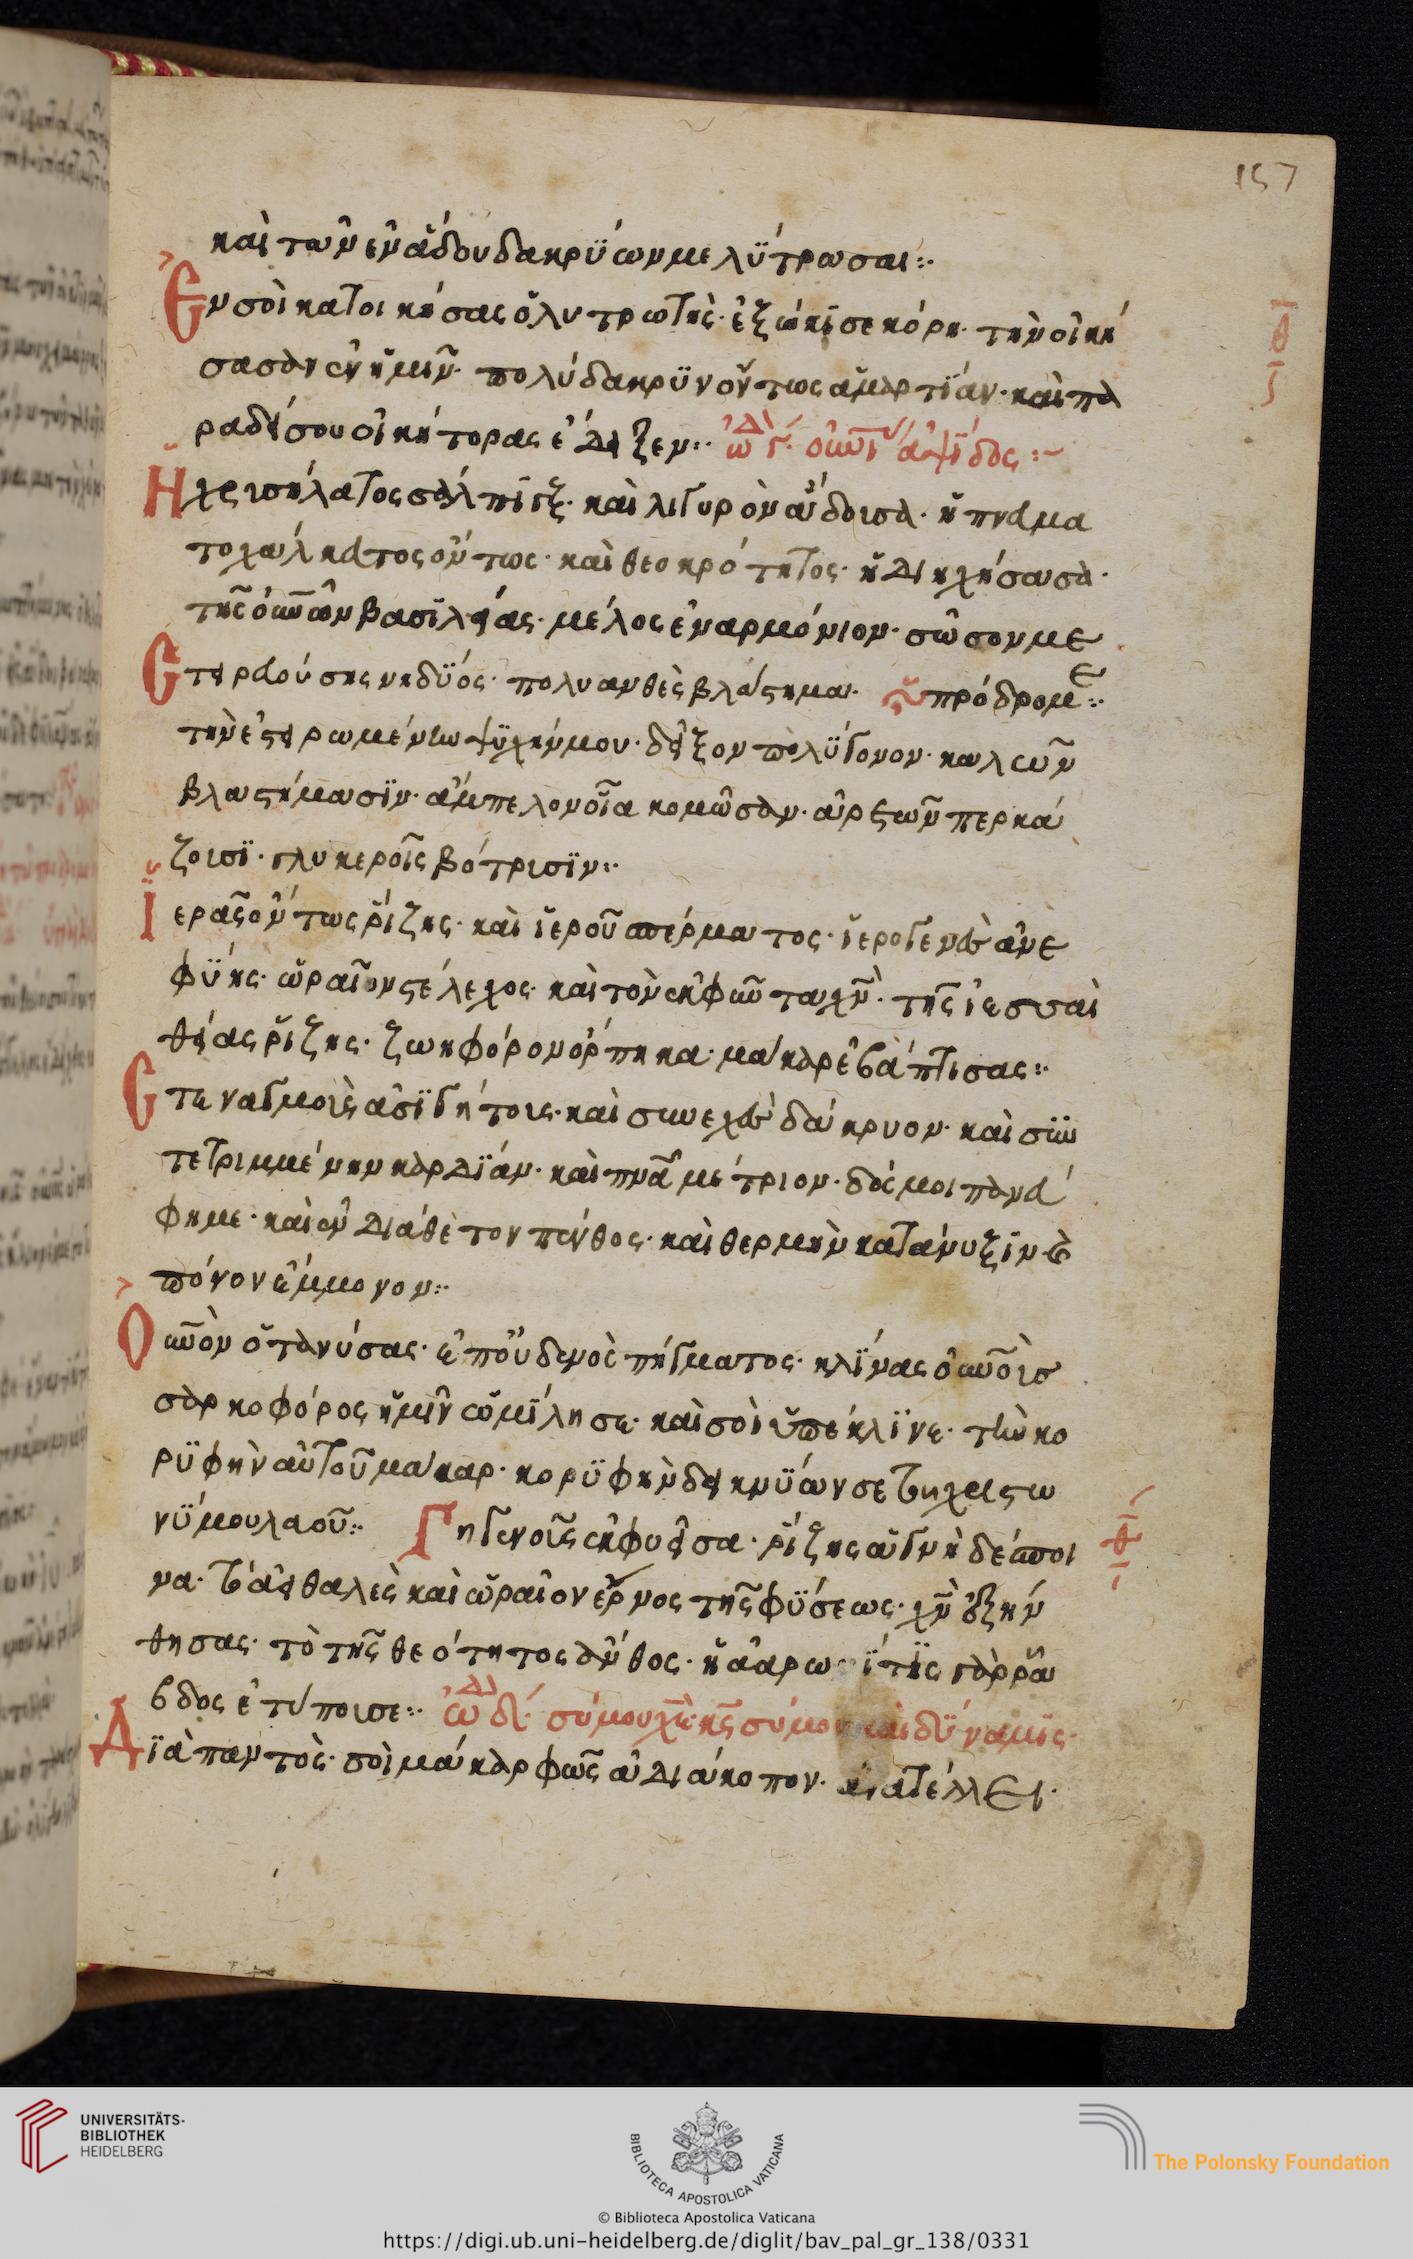 157
καὶ τῶν ἐν ἅδου δακρϋων με λϋτρωσαι:·
Εν σοὶ κατοικήσας ὁ λυτρωτής· ἐξώκισε κόρη· τὴν οἰκή
σασαν ἐν ἡμῖν· πολύδακρϋν ὄντως ἁμαρτίαν· καὶ πα
ραδείσου οἰκήτορας ἔδειξεν:· ὠδ γ· οὐνί ἁψῖδος:~
Η χρισήλατος σάλπιγξ· καὶ λιγυρὸν ἄδουσα· ἡ πνεύμα
τος οὕτως· καὶ θεοκρότητος· ἡ διηχήσασα·
τῆς οὐνῶν βασιλείας· μέλος ἐναρμόνιον· σῶσον με
Στειρευούσης νηδϋός· πολυανθὲς βλάστημα· πρόδρομε:·
τὴν ἐστειρωμένην ψϋχήν μου· δεῖξον πολϋγονον· καλῶν
βλαστήμασιν· ἄμπελον οἷα κομῶσαν· ἀρετῶν περκά
ζουσϊ· γλυκεροῖς βότρισϊν:·
Ϊερᾶς ὄντως ρίζης· καὶ ἱεροῦ σπέρματος· ἱερογενὲς ἀνε
φϋης· ὡραῖον στέλεχος· καὶ τὸν ἐκφῶ χν· τῆς ἰεσσαὶ
θείας ρίζης· ζωηφόρον ὄρπηκα· μάκαρ ἐβάπτισας:·
Στεναγμοὶς ἀσϊγήτοις· καὶ συνεχὲς δάκρυον· καὶ συν
τετριμμένην καρδϊάν· καὶ πνα μέτριον· δός μοι πανεύ
φημε· καὶ εὐδιάθετον πένθος· καὶ θερμὴν κατάνυξϊν καὶ
πόνον ἔμμονον:·
Ο οὐνὸν ὁ τανύσας· ἐπ' οὐδενὸς πήγματος· κλϊνας οὐνοὺς
σαρκοφόρος ἡμῖν ὡμίλησε· καὶ σοὶ ὑπέκλϊνε· τὴν κο
ρϋφὴν αὐτοῦ μάκαρ· κορϋφὴν δεικνϋων σε τῆς χριστω
νϋμου λαοῦ:· Γηγενοῖς ἐκφυεῖσα· ρίζης ἁγνὴ δέσποι
να· τὸ ἀειθαλὲς καὶ ὡραῖον ἔρνος τῆς φϋσεως· χν ηὐξήν
θησας· τὸ τῆς θεότητος ἄνθος· ἡ ἀαρω ϊτις γὰρ ρά
βδος ἐτύποισε:· ὠδ δ· σύ μου χε κς σύ μου καὶ δϋναμις·
Δϊα παντὸς· σοὶ μάκαρ φῶς ἀδιάκοπον· ἀνατέλλει·
UNIVERSITÄTS-
BIBLIOTHEK
HEIDELBERG
BIBLIOTECA APOSTOLICA VATICANA
The Polonsky Foundation
© Biblioteca Apostolica Vaticana
https://digi.ub.uni-heidelberg.de/diglit/bav_pal_gr_138/0331